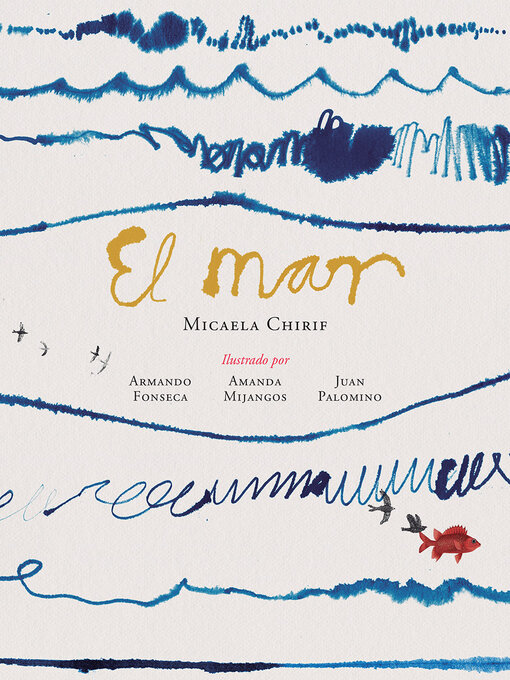 El mar
MICAELA CHIRIF
Ilustrado por
ARMANDO FONSECA
AMANDA MIJANGOS
JUAN PALOMINO